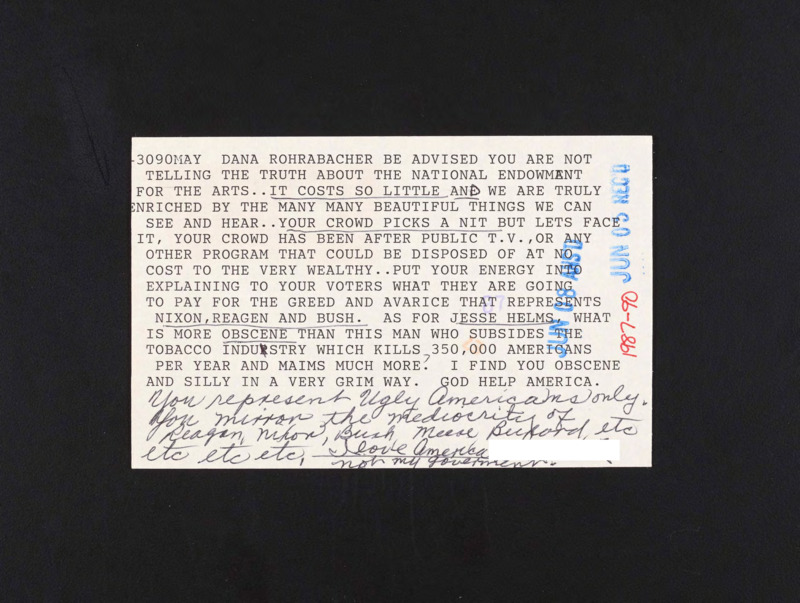 -3090MAY DANA ROHRABACHER BE ADVISED YOU ARE NOT
TELLING THE TRUTH ABOUT THE NATIONAL ENDOWMENT
FOR THE ARTS..IT COSTS SO LITTLE AND WE ARE TRULY
ENRICHED BY THE MANY MANY BEAUTIFUL THINGS WE CAN
SEE AND HEAR..YOUR CROWD PICKS A NIT BUT LETS FACE
IT, YOUR CROWD HAS BEEN AFTER PUBLIC T.V.,OR ANY
OTHER PROGRAM THAT COULD BE DISPOSED OF AT NO
COST TO THE VERY WEALTHY..PUT YOUR ENERGY INTO
EXPLAINING TO YOUR VOTERS WHAT THEY ARE GOING
TO PAY FOR THE GREED AND AVARICE THAT REPRESENTS
NIXON,REAGEN AND BUSH. AS FOR JESSE HELMS, WHAT
IS MORE OBSCENE THAN THIS MAN WHO SUBSIDES THE
TOBACCO INDUSTRY WHICH KILLS 350,000 AMERICANS
PER YEAR AND MAIMS MUCH MORE? I FIND YOU OBSCENE
AND SILLY IN A VERY GRIM WAY. GOD HELP AMERICA.
You represent Ugly Americans only.
You mirror the mediocrity of
Reagan, Nixon, Bush, Meese, etc
etc etc etc, I love America
not my goverment.
JUN 08 ANS'D
JUN 05 REC'D